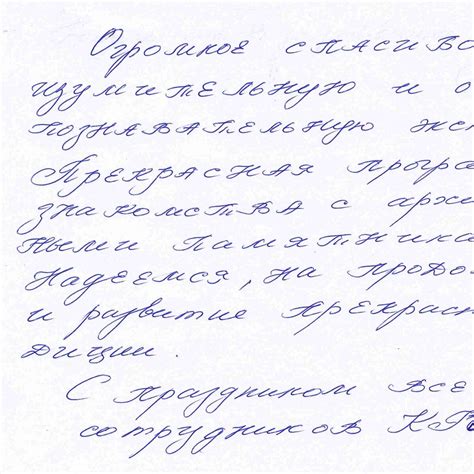 Огромное спасибо
изумительную и о
познавательную экс
Прекрасная програ
знакомства с архи
ными памятника
Надеемся, на продо
и развитие прекрасн
диции.
С праздником все
сотрудников КГБ